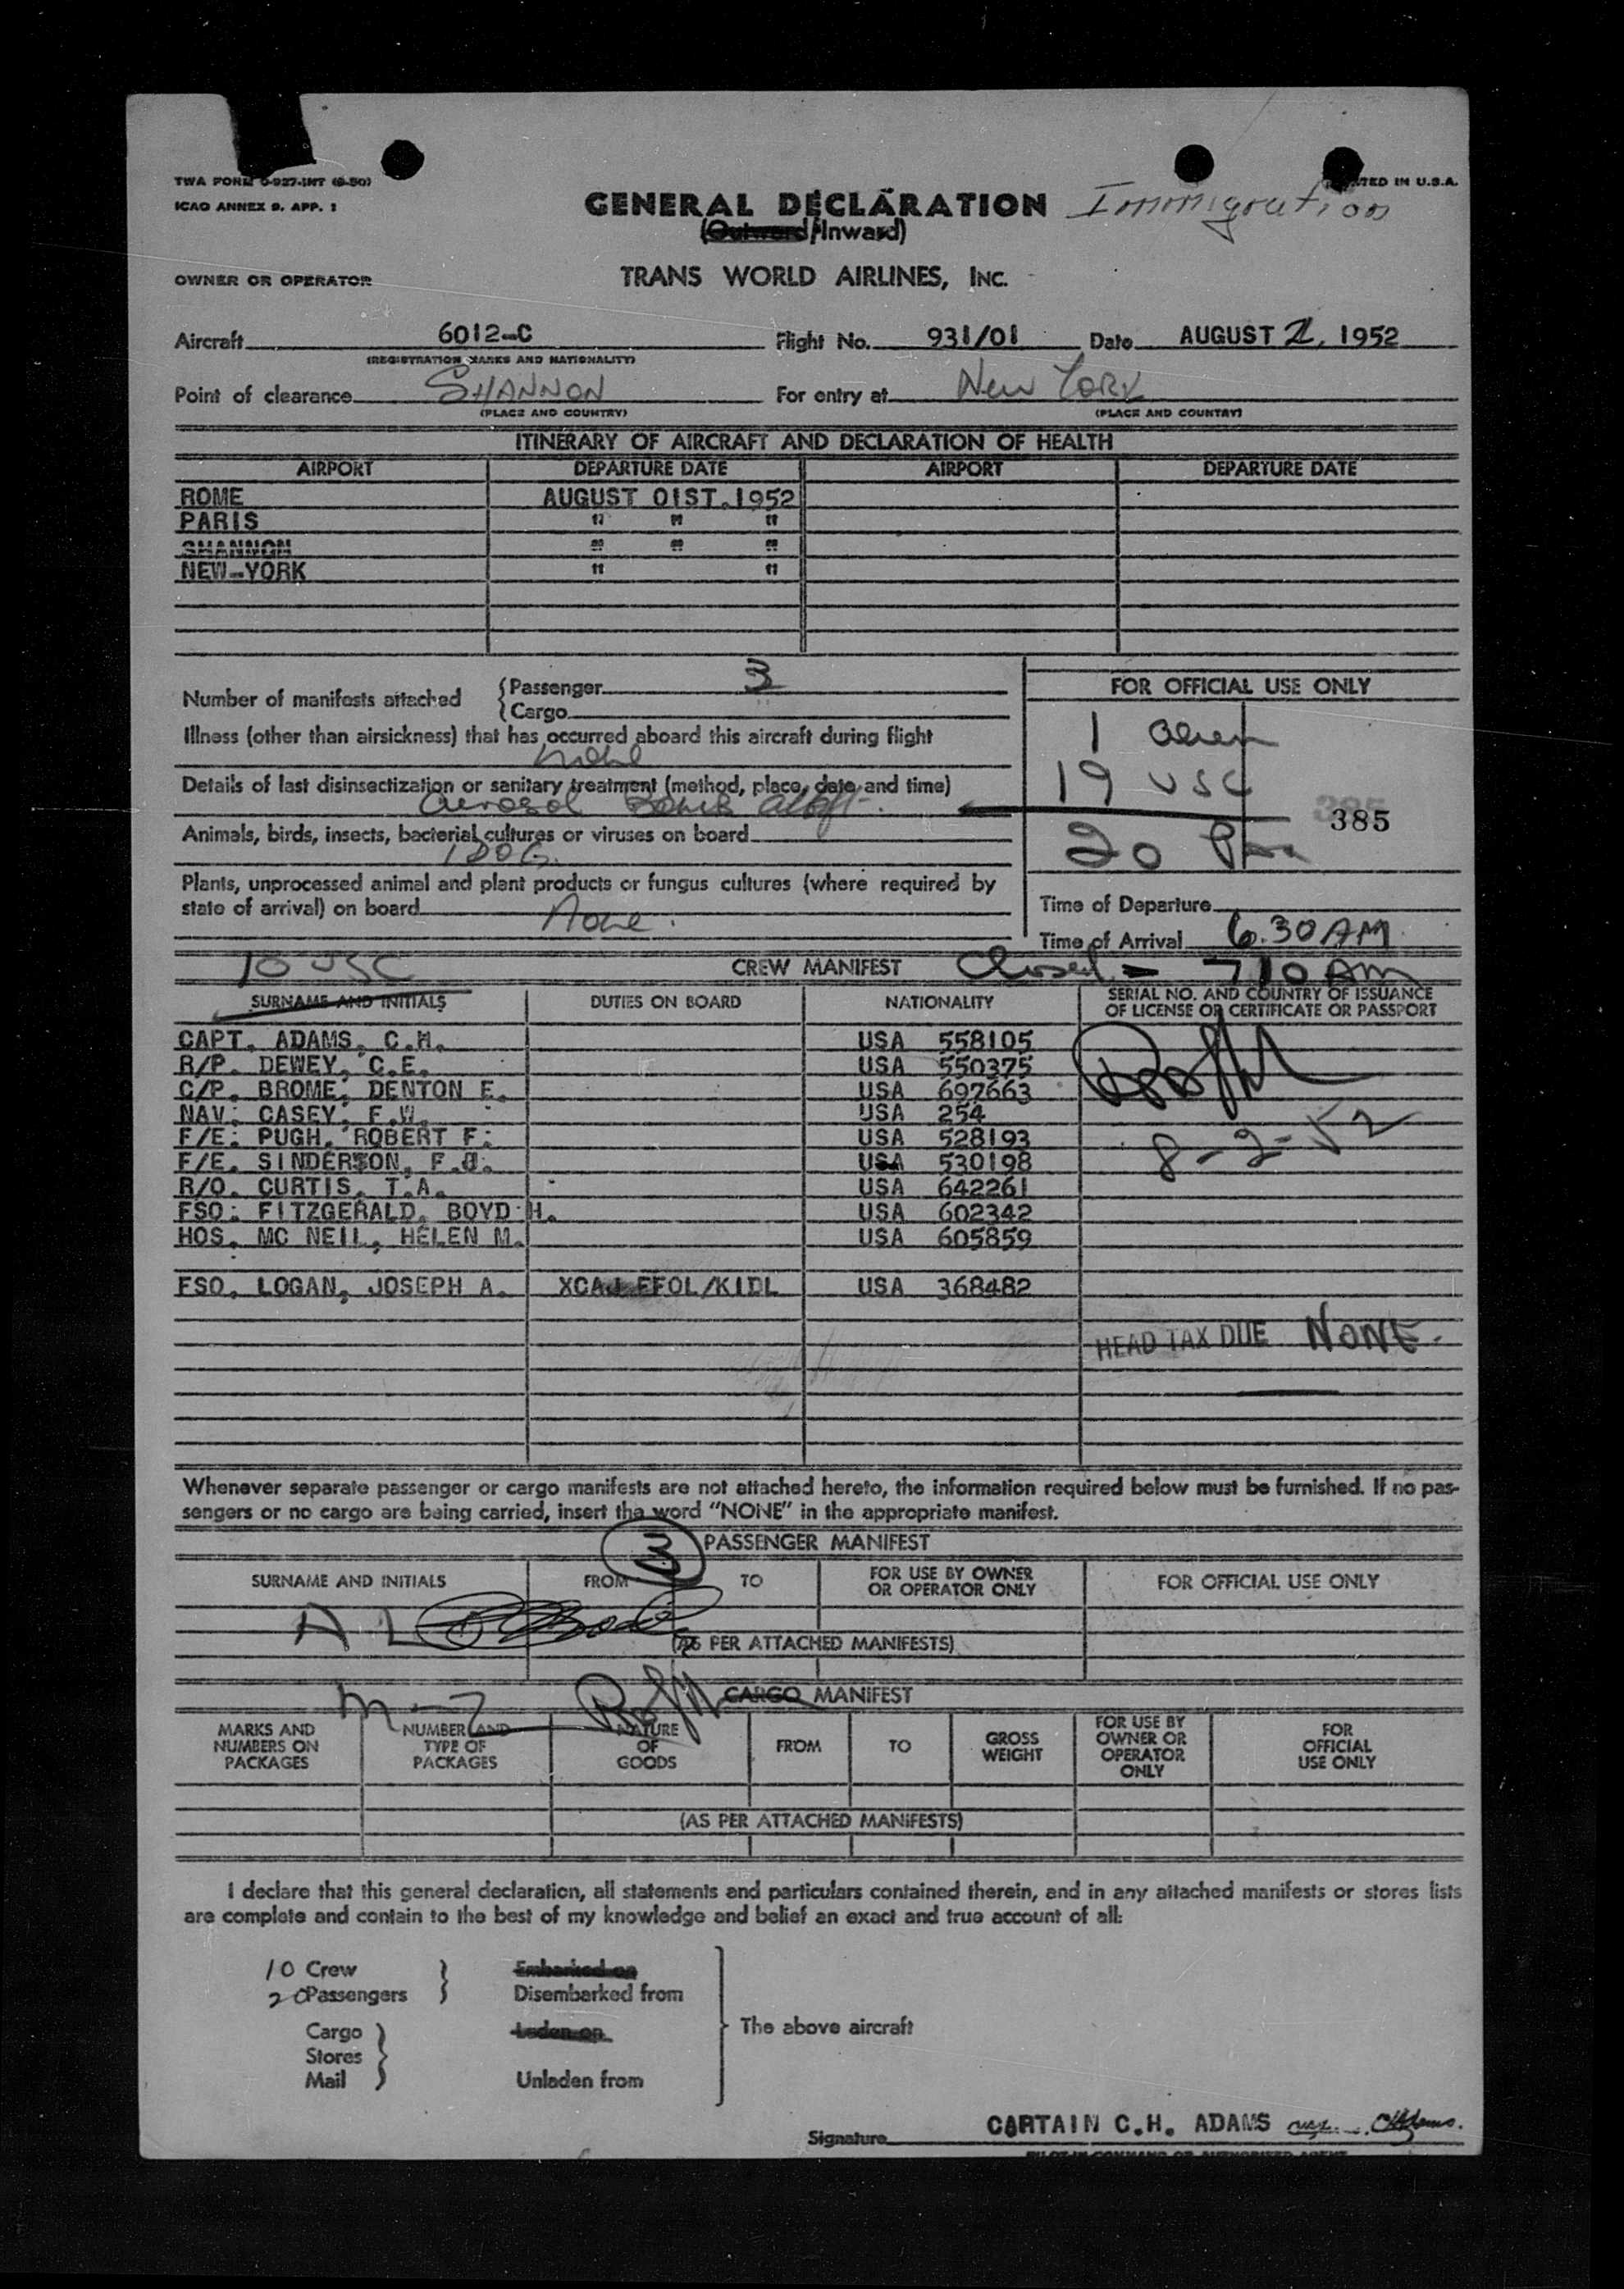 TWA FORM O-927-INT (9-50)
ICAO ANNEX 9, APP. 1
PRINTED IN U.S.A.
GENERAL DECLARATION Immigration
(Outward/Inward)
OWNER OR OPERATOR TRANS WORLD AIRLINES, INC.
Aircraft 6012-C Flight No. 931/01 Date AUGUST 2, 1952
(REGISTRATION MARKS AND NATIONALITY)
Point of clearance SHANNON For entry at New York
(PLACE AND COUNTRY) (PLACE AND COUNTRY)
ITINERARY OF AIRCRAFT AND DECLARATION OF HEALTH
AIRPORT DEPARTURE DATE AIRPORT DEPARTURE DATE
ROME AUGUST 01ST.1952
PARIS " " "
SHANNON " " "
NEW-YORK " "
Number of manifests attached Passenger 3
Cargo
FOR OFFICIAL USE ONLY
1 alien
19 USC
20 Pax
385
Illness (other than airsickness) that has occurred aboard this aircraft during flight
None
Details of last disinsectization or sanitary treatment (method, place, date and time)
Aerosol Bomb aloft.
Animals, birds, insects, bacterial cultures or viruses on board
1 DOG.
Plants, unprocessed animal and plant products or fungus cultures (where required by
state of arrival) on board None.
Time of Departure
Time of Arrival 6.30 AM
10 USC CREW MANIFEST Closed = 710 AM
SURNAME AND INITIALS DUTIES ON BOARD NATIONALITY SERIAL NO. AND COUNTRY OF ISSUANCE
OF LICENSE OR CERTIFICATE OR PASSPORT
CAPT. ADAMS, C.H. USA 558105
R/P. DEWEY, C.E. USA 550375
C/P. BROME, DENTON E. USA 697663
NAV: CASEY, F.W. USA 254
F/E: PUGH, ROBERT F. USA 528193
8-2-52
F/E. SINDERSON, F.J. USA 530198
R/O. CURTIS, T.A. USA 642261
FSO: FITZGERALD, BOYD H. USA 602342
HOS. MC NEIL, HELEN M. USA 605859
FSO. LOGAN, JOSEPH A. XCAJ EFOL/KIDL USA 368482
HEAD TAX DUE NONE.
Whenever separate passenger or cargo manifests are not attached hereto, the information required below must be furnished. If no pas-
sengers or no cargo are being carried, insert the word "NONE" in the appropriate manifest.
3 PASSENGER MANIFEST
SURNAME AND INITIALS FROM TO FOR USE BY OWNER
OR OPERATOR ONLY FOR OFFICIAL USE ONLY
(AS PER ATTACHED MANIFESTS)
CARGO MANIFEST
MARKS AND
NUMBERS ON
PACKAGES NUMBER AND
TYPE OF
PACKAGES NATURE
OF
GOODS FROM TO GROSS
WEIGHT FOR USE BY
OWNER OR
OPERATOR
ONLY FOR
OFFICIAL
USE ONLY
(AS PER ATTACHED MANIFESTS)
I declare that this general declaration, all statements and particulars contained therein, and in any attached manifests or stores lists
are complete and contain to the best of my knowledge and belief an exact and true account of all:
10 Crew Embarked on
20 Passengers Disembarked from
Cargo Laden on The above aircraft
Stores
Mail Unladen from
CAPTAIN C.H. ADAMS CHAdams.
Signature
PILOT-IN-COMMAND OR AUTHORIZED AGENT